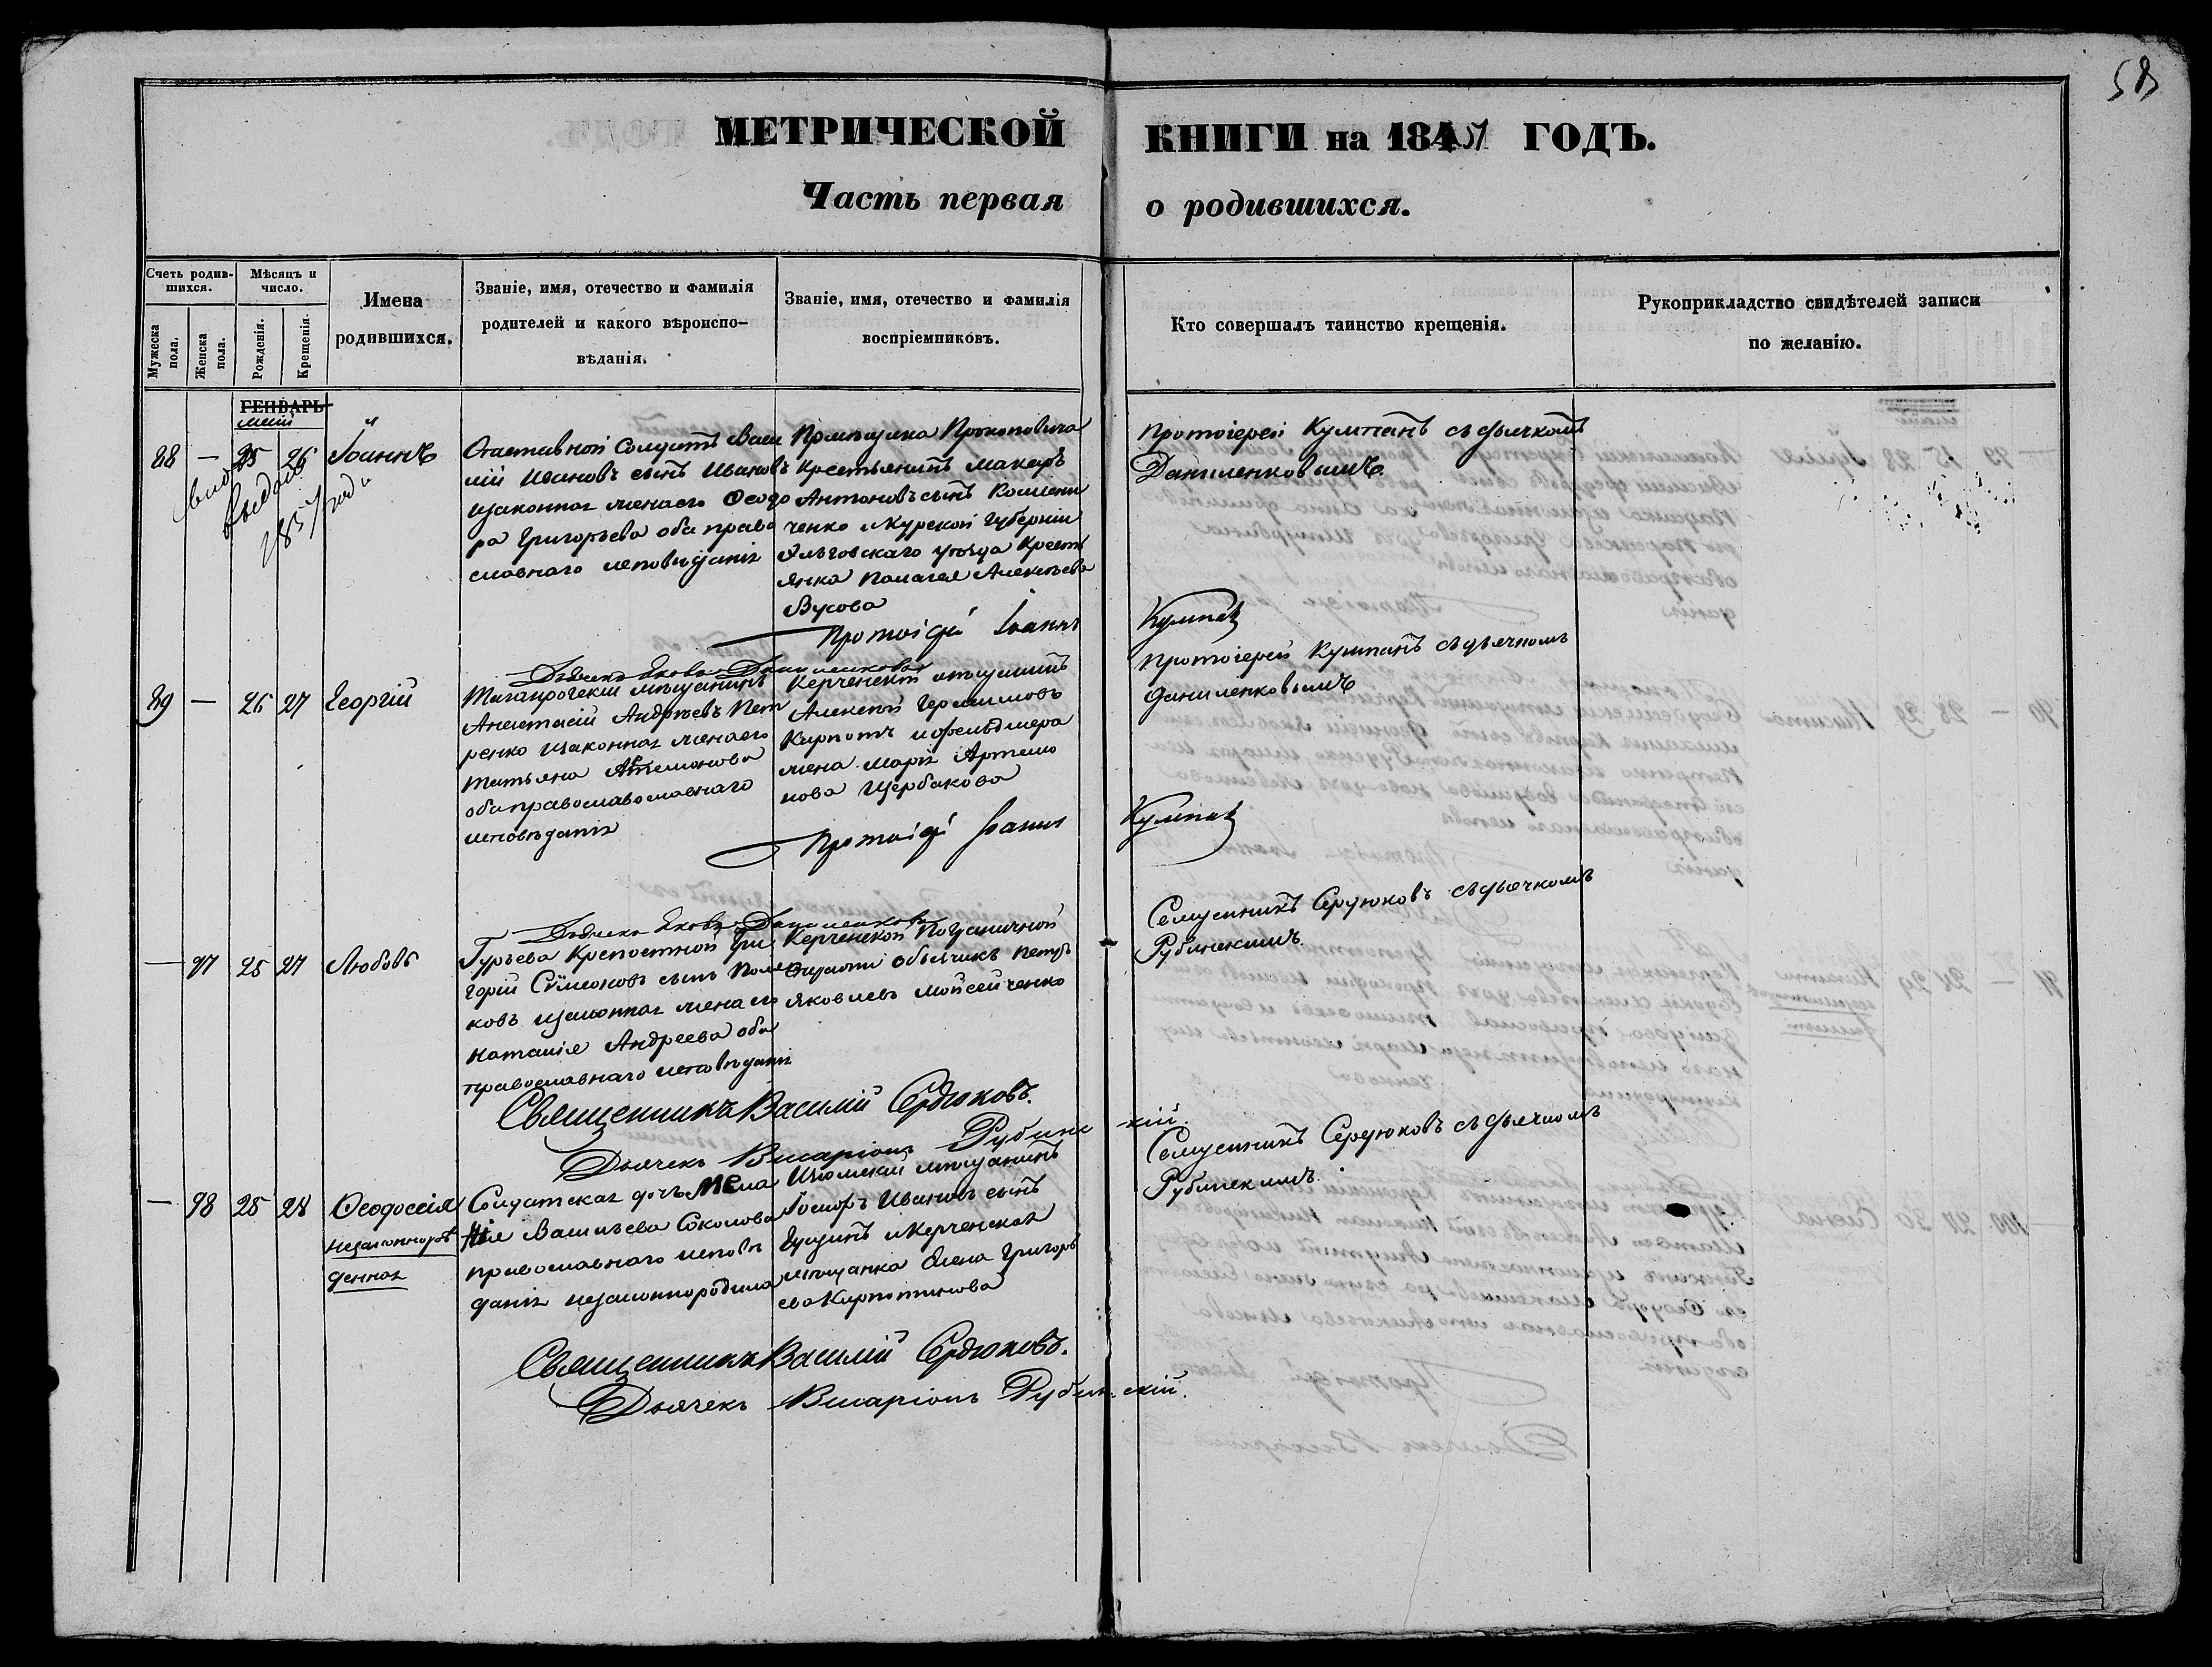 58
МЕТРИЧЕСКОЙ КНИГИ на 1851 ГОДЪ.
Часть первая о родившихся.
Счетъ родив-
шихся.
Мужеска пола.
Женска пола.
Мѣсяцъ и
число.
Рожденія.
Крещенія.
Имена
родившихся.
Званіе, имя, отечество и фамилія
родителей и какого вѣроиспо-
вѣданія.
Званіе, имя, отечество и фамилія
воспріемниковъ.
Кто совершалъ таинство крещенія.
Рукоприкладство свидѣтелей записи
по желанію.
ГЕНВАРЬ
маій
88 — 25 26 Іоаннъ
Отставной Солдатъ Васи
лій Ивановъ сынъ Ивановъ
изаконная жена его Ѳеодо
ра Григорьева оба право
славнаго исповѣданія
Помѣщика Прокоповича
Крестьянинъ Макаръ
Антоновъ сынъ
ченко и Курской Губерніи
Льговскаго уѣзда Крестъ
янка Палагея Алексѣева
Бусова
Протоіерей Кумпанъ съ дьячкомъ
Даниленковымъ
Протоіерей Іоаннъ Кумпанъ
Дьячекъ Яковъ Даниленковъ
89 — 26 27 Георгій
Таганрогскій мѣщанинъ
Анастасій Андрѣевъ Пет
ренко изаконная жена его
Татьяна Артемонова
оба православославнаго
исповѣданія
Керченскій мѣщанинъ
Алексѣй Герасимовъ
Карпотъ и фельдшера
жена Марія Артемо
нова Щербакова
Протоіерей Кумпанъ съ дьячкомъ
Даниленковымъ
Протоіерей Іоаннъ Кумпанъ
Дьячекъ Яковъ Даниленковъ
— 97 25 27 Любовь
Гурьева Крепостной Гри
горій Сѵмеоновъ сынъ Поля
ковъ изаконная жена его
Наталія Андреева оба
православнаго исповѣданія
Керченской Пограничной
Стражи объѣзчикъ Петръ
Яковлевъ Мойсейченко
Священникъ Сердюковъ съ дьячкомъ
Рубинскимъ
Священникъ Василій Сердюковъ.
Дьячекъ Висаріонъ Рубинскій.
— 98 25 28 Ѳеодоссія
незаконнорож
денная
Солдатская дочь Мела
нія Васильева Соколова
православнаго исповѣ
данія незаконнородила
Изюмскій мѣщанинъ
Іосифъ Ивановъ сынъ
и Керченская
мѣщанка Елена Григорь
ева
Священникъ Сердюковъ съ дьячкомъ
Рубинскимъ
Священникъ Василій Сердюковъ.
Дьячекъ Висаріонъ Рубинскій.